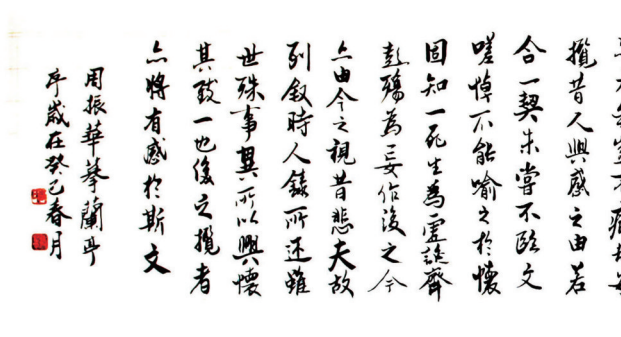 攬昔人興感之由若
合一契未嘗不臨文
嗟悼不能喻之於懷
固知一死生為虛誕齊
彭殤為妄作後之今
亦由今之視昔悲夫故
列敘時人錄所述雖
世殊事異所以興懷
其致一也後之攬者
亦將有感於斯文
周振華摹蘭亭
序歲在癸巳春月